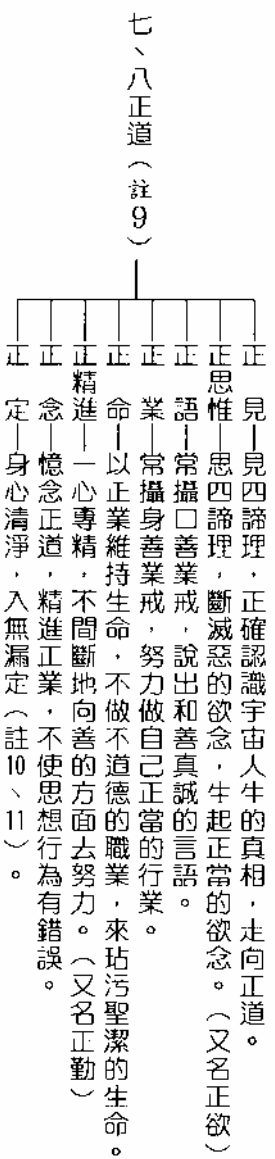 七、八正道（註9）
正見—見四諦理，正確認識宇宙人生的真相，走向正道。
正思惟—思四諦理，斷滅惡的欲念，生起正當的欲念。（又名正欲）
正語—常攝口善業戒，說出和善真誠的言語。
正業—常攝身善業戒，努力做自己正當的行業。
正命—以正業維持生命，不做不道德的職業，來玷污聖潔的生命。
正精進—一心專精，不間斷地向善的方面去努力。（又名正勤）
正念—憶念正道，精進正業，不使思想行為有錯誤。
正定—身心清淨，入無漏定（註10、11）。